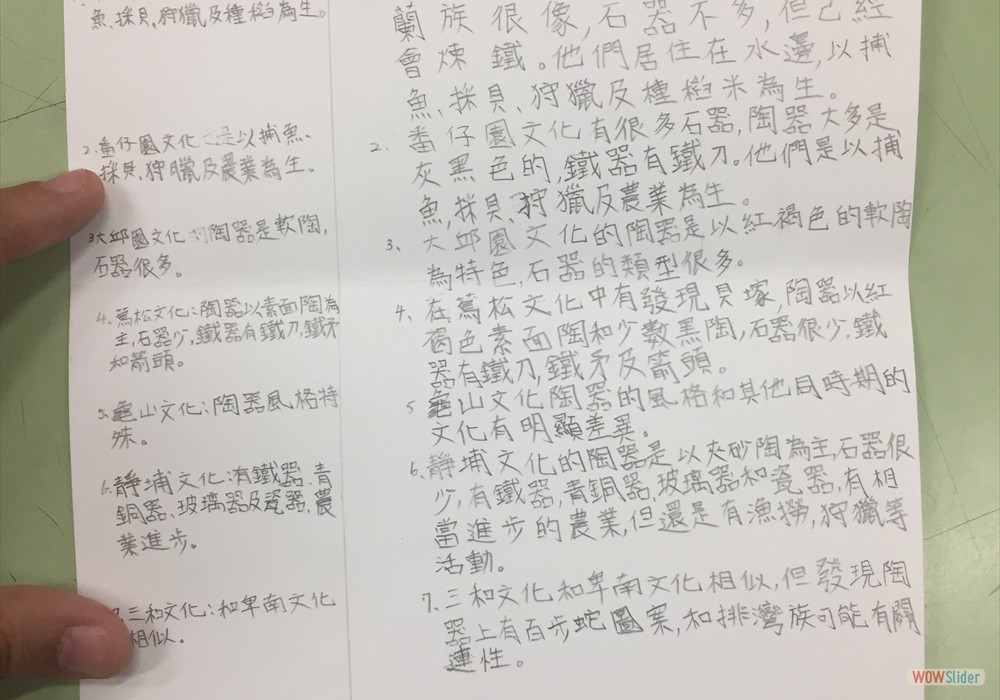 魚、採貝、狩獵及種稻為生。
2.番仔園文化 是以捕魚、
採貝、狩獵及農業為生。
3.大邱園文化 陶器是軟陶,
石器很多。
4.蔦松文化:陶器以素面陶為
主,石器少,鐵器有鐵刀,鐵矛
和箭頭。
5.龜山文化:陶器風格特
殊。
6.靜埔文化:有鐵器、青
銅器、玻璃器及瓷器,農
業進步。
7.三和文化:和卑南文化
相似。
蘭族很像,石器不多,但已經
會煉鐵。他們居住在水邊,以捕
魚、採貝、狩獵及種稻米為生。
2.番仔園文化有很多石器,陶器大多是
灰黑色的,鐵器有鐵刀。他們是以捕
魚,採貝、狩獵及農業為生。
3.大邱園文化的陶器是以紅褐色的軟陶
為特色,石器的類型很多。
4.在蔦松文化中有發現貝塚,陶器以紅
褐色素面陶和少數黑陶,石器很少,鐵
器有鐵刀,鐵矛及箭頭。
5龜山文化陶器的風格和其他同時期的
文化有明顯差異。
6.靜埔文化的陶器是以夾砂陶為主,石器很
少,有鐵器,青銅器,玻璃器和瓷器,有相
當進步的農業,但還是有漁撈,狩獵等
活動。
7.三和文化和卑南文化相似,但發現陶
器上有百步蛇圖案,和排灣族可能有關
連性。
WOWSlider